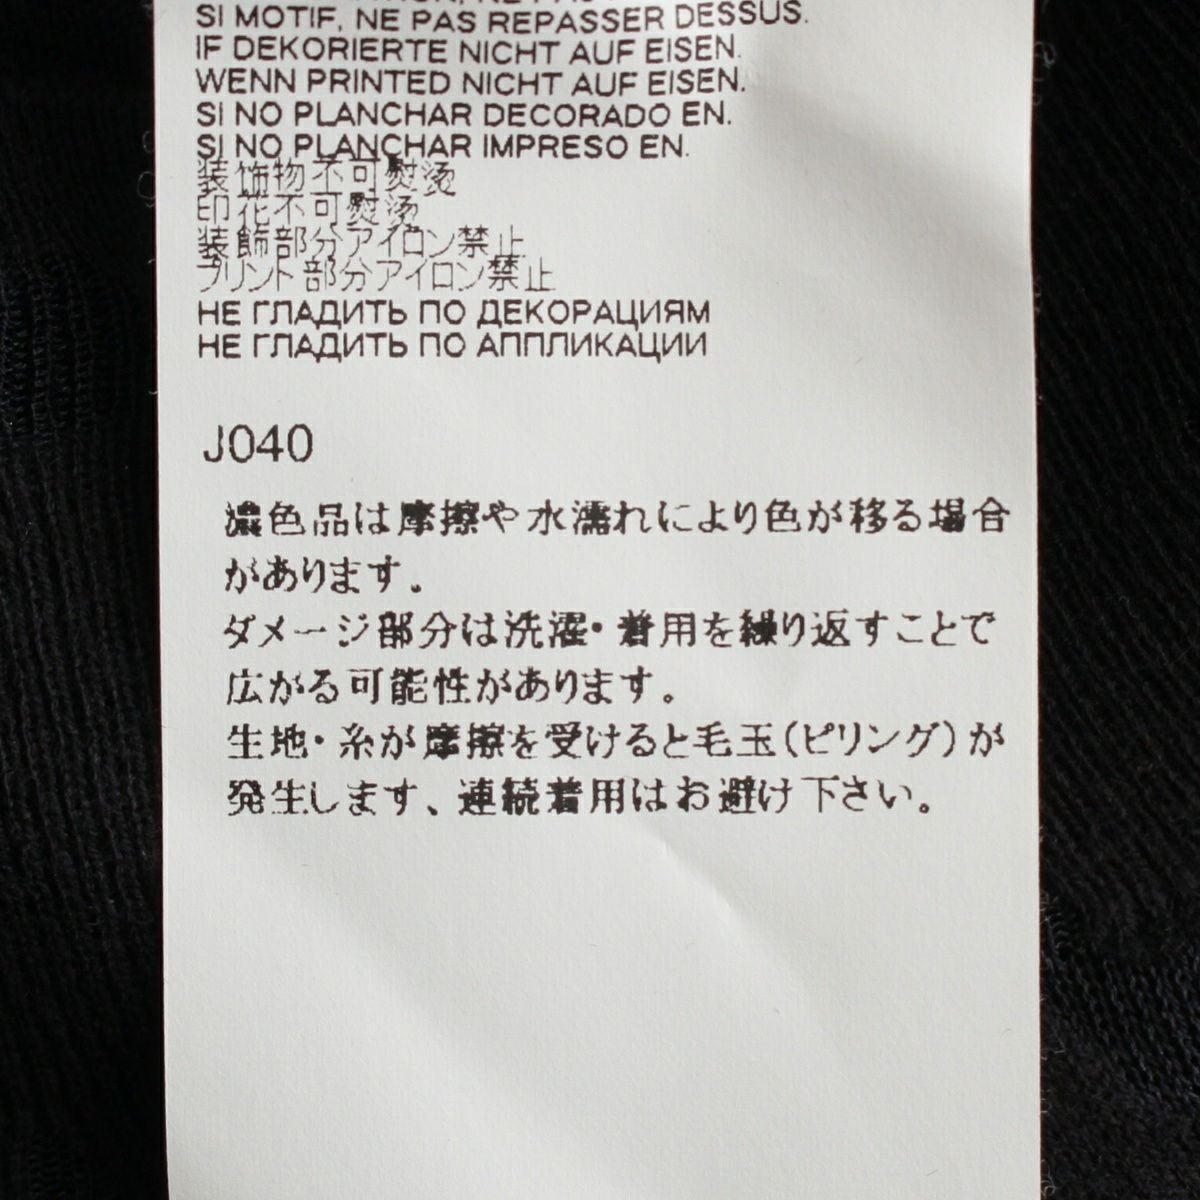 SI MOTIF, NE PAS REPASSER DESSUS.
IF DEKORIERTE NICHT AUF EISEN.
WENN PRINTED NICHT AUF EISEN.
SI NO PLANCHAR DECORADO EN.
SI NO PLANCHAR IMPRESO EN.
装饰物不可熨烫
印花不可熨烫
装飾部分アイロン禁止
プリント部分アイロン禁止
НЕ ГЛАДИТЬ ПО ДЕКОРАЦИЯМ
НЕ ГЛАДИТЬ ПО АППЛИКАЦИИ
J040
濃色品は摩擦や水濡れにより色が移る場合
があります。
ダメージ部分は洗濯・着用を繰り返すことで
広がる可能性があります。
生地・糸が摩擦を受けると毛玉(ピリング)が
発生します、連続着用はお避け下さい。